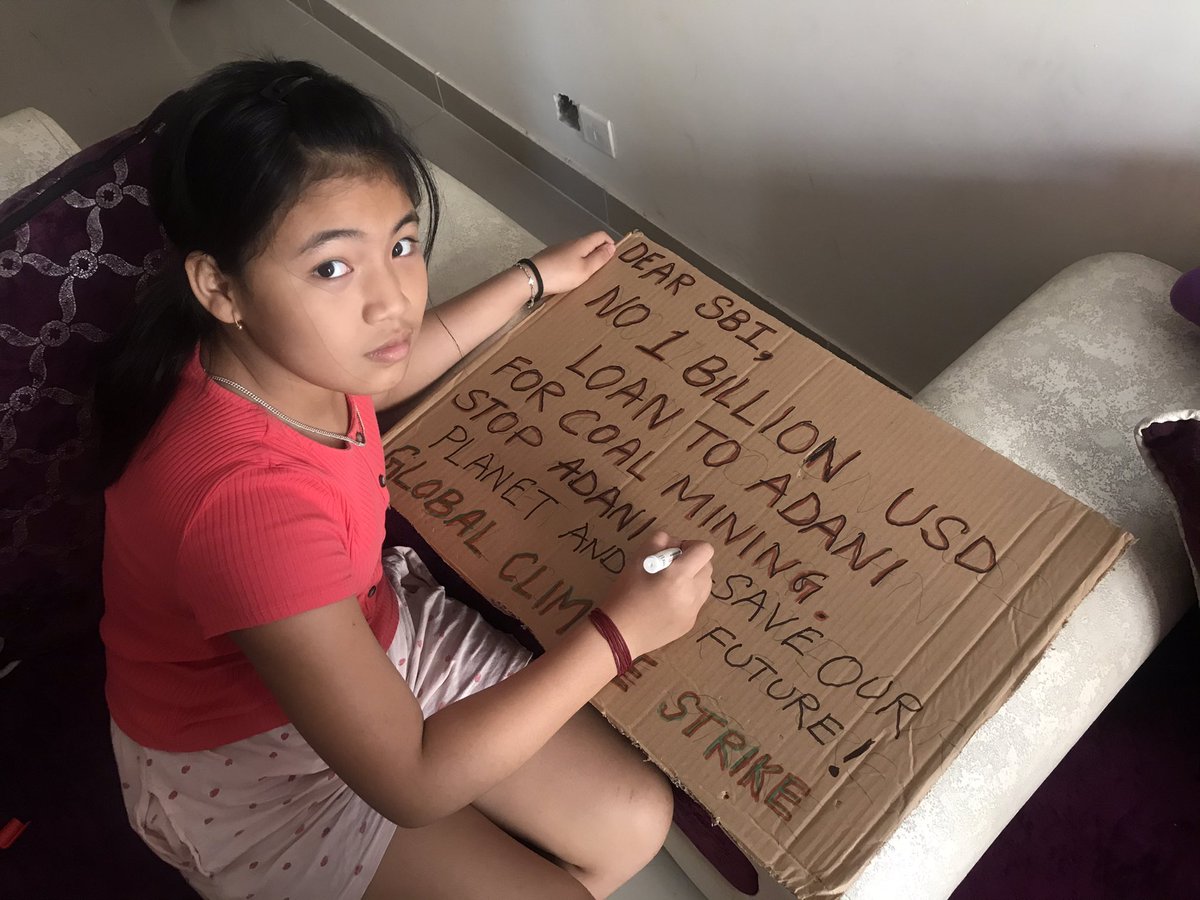 DEAR SBI,
NO 1 BILLION USD
LOAN TO ADANI
FOR COAL MINING.
STOP ADANI SAVE OUR
PLANET AND FUTURE!
GLOBAL CLIM E STRIKE